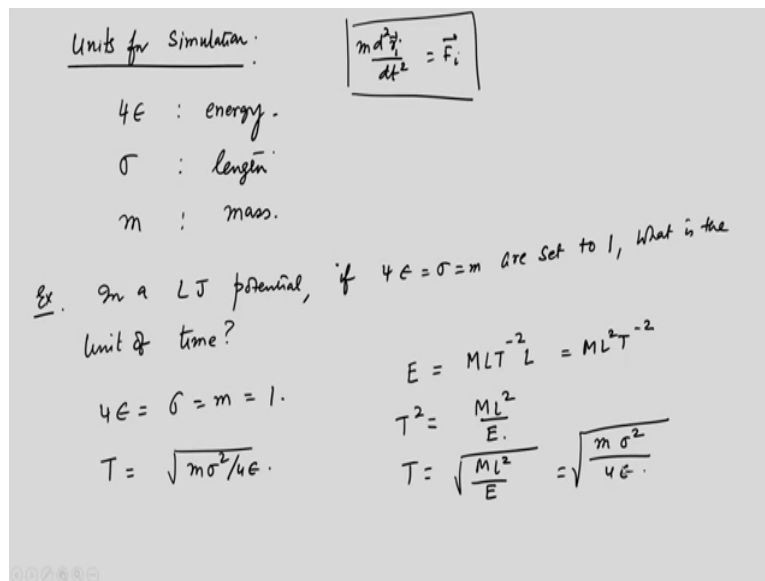 Units for Simulation:
m d²r⃗ᵢ/dt² = F⃗ᵢ
4ϵ : energy.
σ : length
m : mass.
Ex. In a LJ potential, if 4ϵ = σ = m are set to 1, what is the
unit of time?
4ϵ = σ = m = 1.
T = √mσ²/4ϵ.
E = MLT⁻²L = ML²T⁻²
T² = ML²/E.
T = √ML²/E = √mσ²/4ϵ.